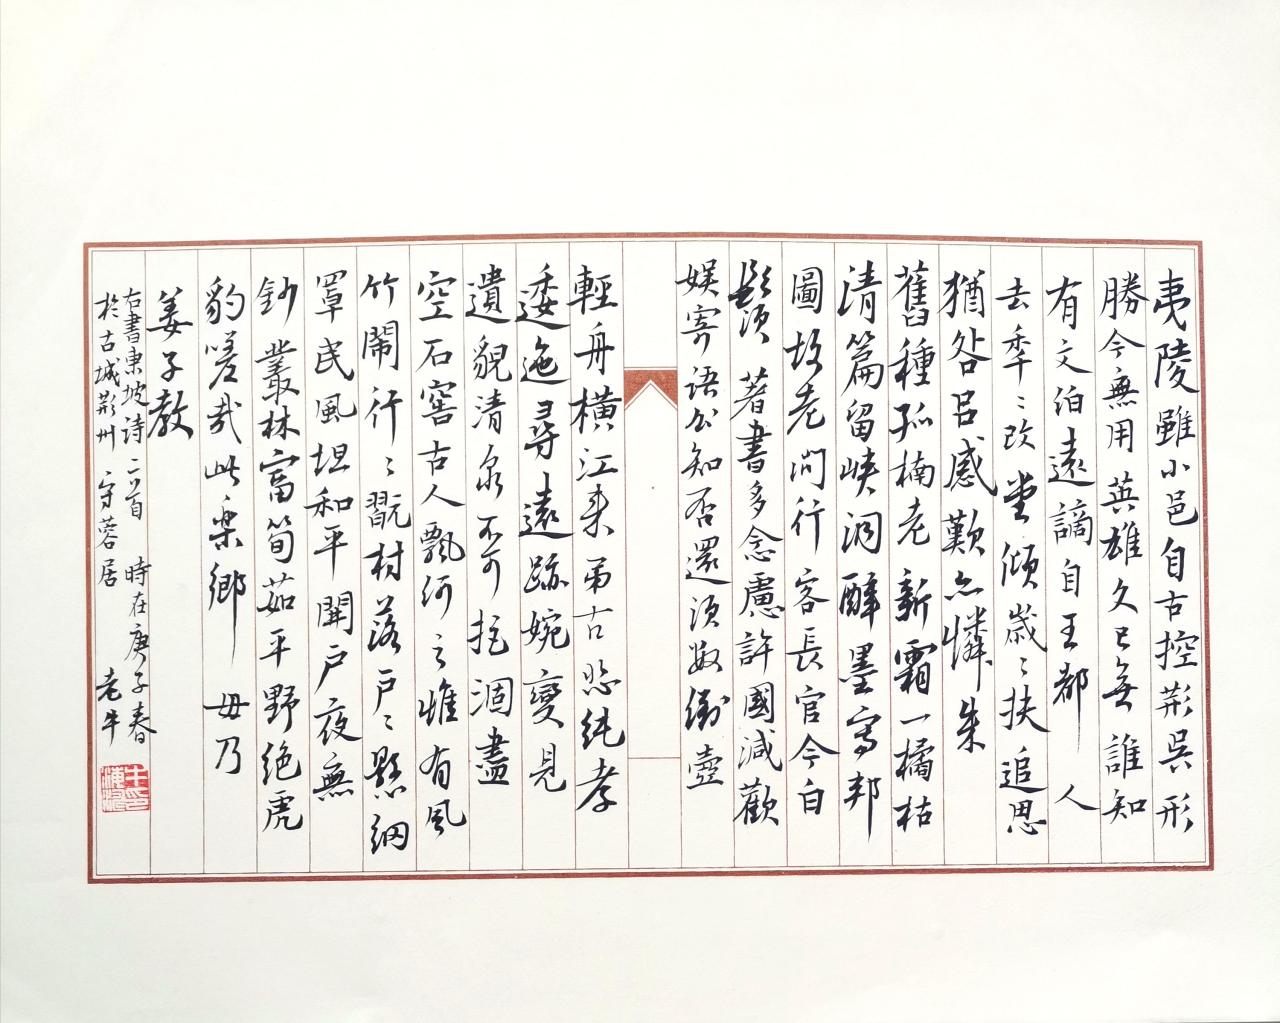 夷陵雖小邑自古控荆吳形
勝今無用英雄久已無誰知
有文伯遠謫自王都 人
去年〻改堂傾歲〻扶追思
猶咎呂感歎亦憐朱
舊種孤楠老新霜一橘枯
清篇留峽洞醉墨寫邦
圖故老問行客長官今白
鬚 著書多念慮許國減歡
娛寄語公知否還須數倒壺
輕舟橫江來弔古悲純孝
逶迤尋遠跡婉孌見
遺貌清泉不可挹涸盡
空石窖古人飄何之惟有風
竹鬧行〻翫村落戶〻懸網
罩民風坦和平開戶夜無
鈔叢林富筍茹平野絕虎
豹嗟哉此樂鄉 毋乃
姜子教
右書東坡詩二首 時在庚子春
於古城荆州 守蓉居 老牛